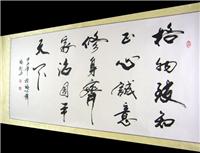 格物致知
正心誠意
修身齊
家治國平
天下